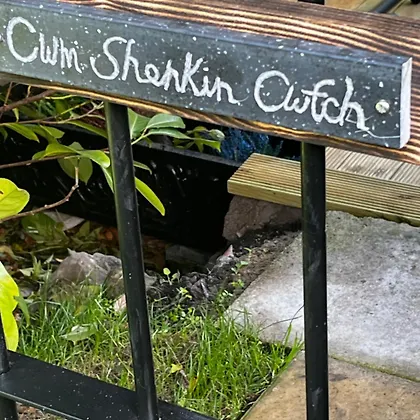 Cwm Shenkin Cwtch